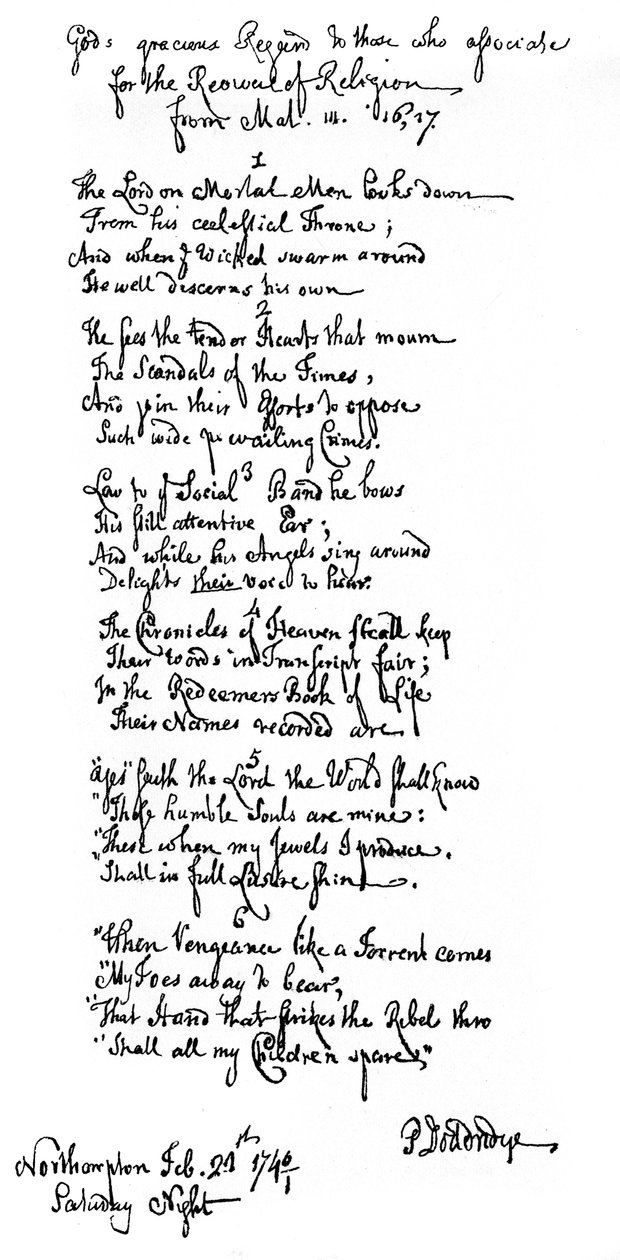 Gods gracious Regard to those who associate
for the Reowal of Religion
from Mal. III. 16, 17.
1
The Lord on Mortal Men looks down
From his ceelestial Throne;
And when ye Wicked swarm around
He well descerns his own
2
He sees the tendor Hearts that mourn
The Scandals of the Times,
And join their Efforts to oppose
Such wide prevailing Crimes.
3
Low to ye Social Band he bows
His still attentive Ear;
And while his Angels sing around
Delights their voice to hear.
4
The Chronicles of Heaven shall keep
Their Words in Transcript fair;
In the Redeemers Book of Life
Their Names recorded are
5
"Yes" saith the Lord the World shall know
"Those humble Souls are mine:
"These when my Jewels I produce.
"Shall in full Lustre shine.
6
"When Vengeance like a Torrent comes
"My Foes away to bear,
"That Hand that strikes the Rebel thro
"Shall all my Children spare,"
P Doddridge
Northampton Feb. 21th 1740/1
Saturday Night